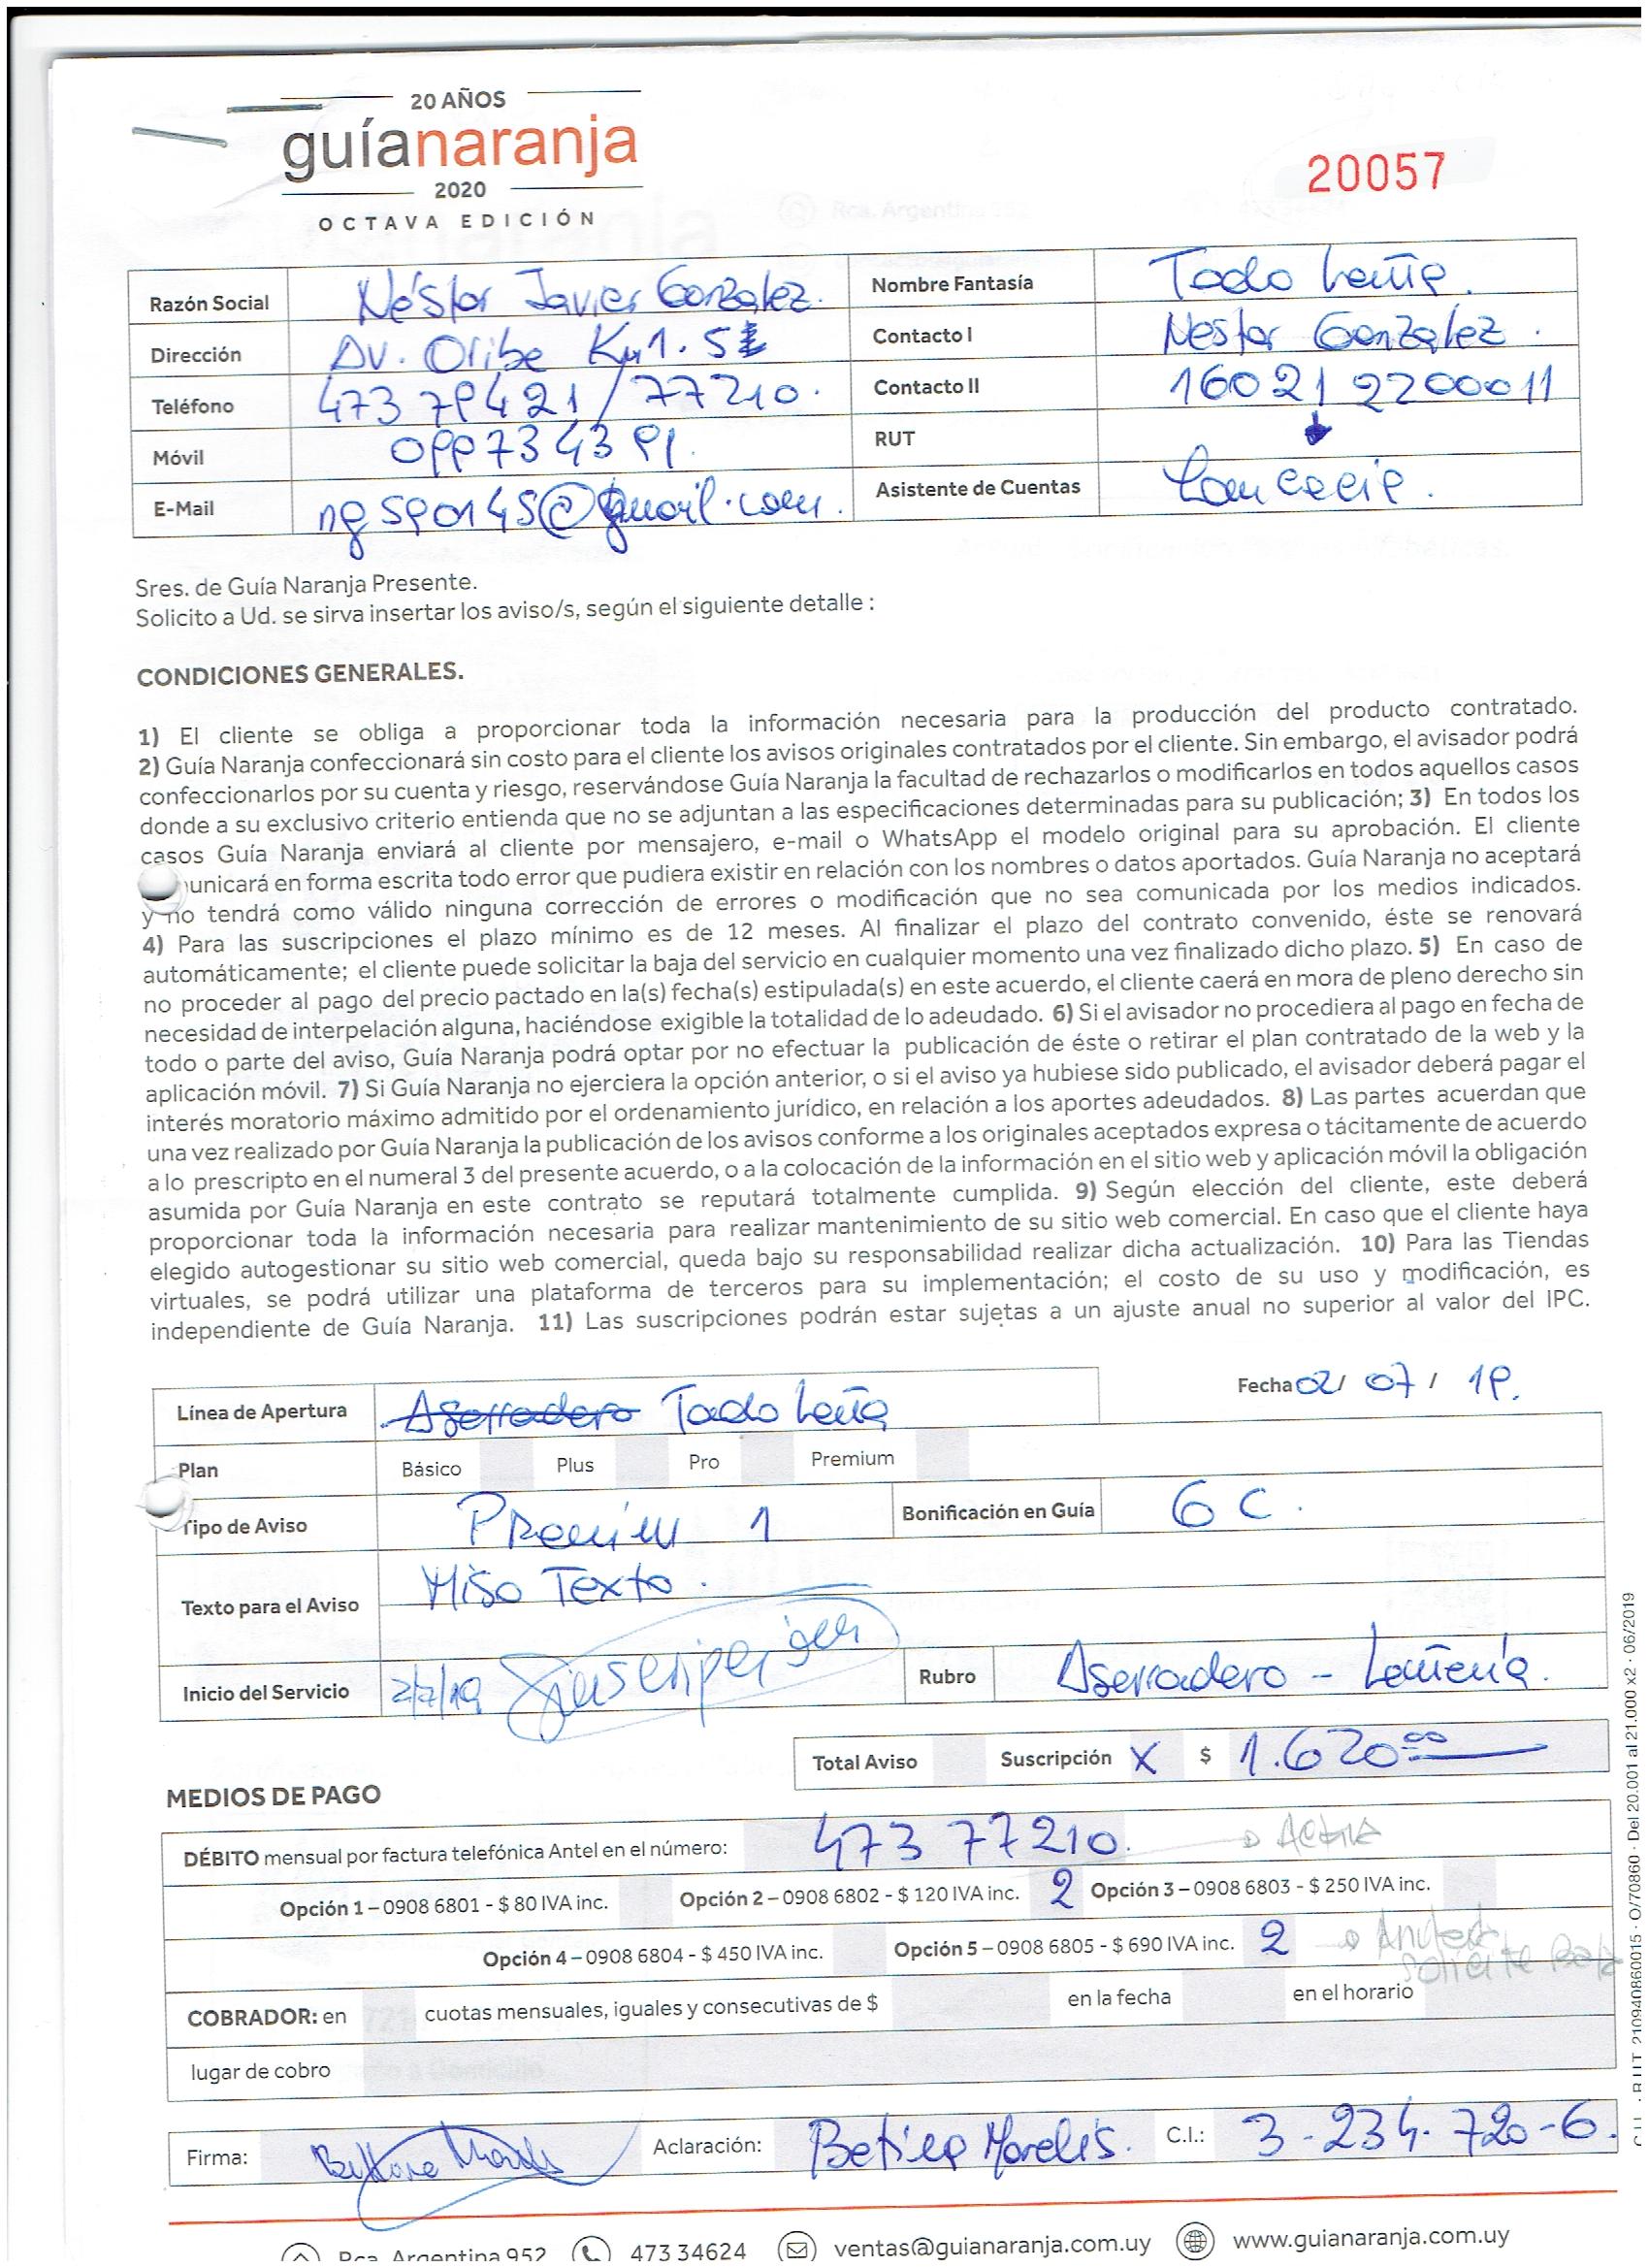 20 AÑOS
guíanaranja
2020
OCTAVA EDICIÓN
20057
Razón Social Néstor Javier Gonzalez. Nombre Fantasía Todo Leña.
Dirección Av. Oribe Km1. 5 Contacto I Nestor Gonzalez.
Teléfono 473 79421 / 77210. Contacto II 16021 2200011
Móvil 099734391. RUT
E-Mail ng590145@gmail.com. Asistente de Cuentas
Sres. de Guía Naranja Presente.
Solicito a Ud. se sirva insertar los aviso/s, según el siguiente detalle :
CONDICIONES GENERALES.
1) El cliente se obliga a proporcionar toda la información necesaria para la producción del producto contratado.
2) Guía Naranja confeccionará sin costo para el cliente los avisos originales contratados por el cliente. Sin embargo, el avisador podrá
confeccionarlos por su cuenta y riesgo, reservándose Guía Naranja la facultad de rechazarlos o modificarlos en todos aquellos casos
donde a su exclusivo criterio entienda que no se adjuntan a las especificaciones determinadas para su publicación; 3) En todos los
casos Guía Naranja enviará al cliente por mensajero, e-mail o WhatsApp el modelo original para su aprobación. El cliente
unicará en forma escrita todo error que pudiera existir en relación con los nombres o datos aportados. Guía Naranja no aceptará
y no tendrá como válido ninguna corrección de errores o modificación que no sea comunicada por los medios indicados.
4) Para las suscripciones el plazo mínimo es de 12 meses. Al finalizar el plazo del contrato convenido, éste se renovará
automáticamente; el cliente puede solicitar la baja del servicio en cualquier momento una vez finalizado dicho plazo. 5) En caso de
no proceder al pago del precio pactado en la(s) fecha(s) estipulada(s) en este acuerdo, el cliente caerá en mora de pleno derecho sin
necesidad de interpelación alguna, haciéndose exigible la totalidad de lo adeudado. 6) Si el avisador no procediera al pago en fecha de
todo o parte del aviso, Guía Naranja podrá optar por no efectuar la publicación de éste o retirar el plan contratado de la web y la
aplicación móvil. 7) Si Guía Naranja no ejerciera la opción anterior, o si el aviso ya hubiese sido publicado, el avisador deberá pagar el
interés moratorio máximo admitido por el ordenamiento jurídico, en relación a los aportes adeudados. 8) Las partes acuerdan que
una vez realizado por Guía Naranja la publicación de los avisos conforme a los originales aceptados expresa o tácitamente de acuerdo
a lo prescripto en el numeral 3 del presente acuerdo, o a la colocación de la información en el sitio web y aplicación móvil la obligación
asumida por Guía Naranja en este contrato se reputará totalmente cumplida. 9) Según elección del cliente, este deberá
proporcionar toda la información necesaria para realizar mantenimiento de su sitio web comercial. En caso que el cliente haya
elegido autogestionar su sitio web comercial, queda bajo su responsabilidad realizar dicha actualización. 10) Para las Tiendas
virtuales, se podrá utilizar una plataforma de terceros para su implementación; el costo de su uso y modificación, es
independiente de Guía Naranja. 11) Las suscripciones podrán estar sujetas a un ajuste anual no superior al valor del IPC.
Fecha 02/ 07 / 19.
Línea de Apertura Aserradero Todo Leña
Plan Básico Plus Pro Premium
Tipo de Aviso Premium 1 Bonificación en Guía 6 C.
Texto para el Aviso Miso Texto.
Inicio del Servicio 2/7/19 Suscripción Rubro Aserradero - Leñería.
Total Aviso Suscripción X $ 1.620 00
MEDIOS DE PAGO
DÉBITO mensual por factura telefónica Antel en el número: 473 77210. Activa
Opción 1 – 0908 6801 - $ 80 IVA inc. Opción 2 – 0908 6802 - $ 120 IVA inc. 2 Opción 3 – 0908 6803 - $ 250 IVA inc.
Opción 4 – 0908 6804 - $ 450 IVA inc. Opción 5 – 0908 6805 - $ 690 IVA inc. 2
COBRADOR: en cuotas mensuales, iguales y consecutivas de $ en la fecha en el horario
lugar de cobro
Firma: Aclaración: Morales. C.I.: 3-234.720-6.
Rca. Argentina 952 473 34624 ventas@guianaranja.com.uy www.guianaranja.com.uy
RUT 210940860015 · O/70860 · Del 20.001 al 21.000 x2 · 06/2019